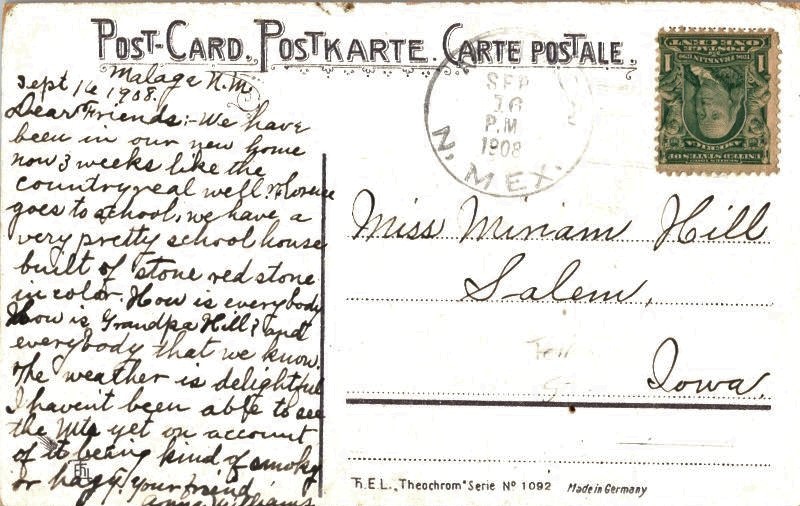 POST-CARD. POSTKARTE. CARTE POSTALE.
Malaga N.M.
Sept 16 1908.
Dear Friends:- We have
been in our new home
now 3 weeks like the
country real well. Florence
goes to school, we have a
very pretty school house
built of stone red stone
in color. How is everybody
How is Grandpa Hill? and
everybody that we know.
The weather is delightful
I havent been able to see
the Mts yet on account
of it being kind of smoky
or hazy. Your friend
Anna Williams
SEP
16
P.M.
1908
N. MEX.
UNITED STATES OF
AMERICA
1706 FRANKLIN 1790
1 1
POSTAGE
ONE CENT
Miss Miriam Hill
Salem,
Iowa.
H.E.L. „Theochrom" Serie No 1092 Made in Germany